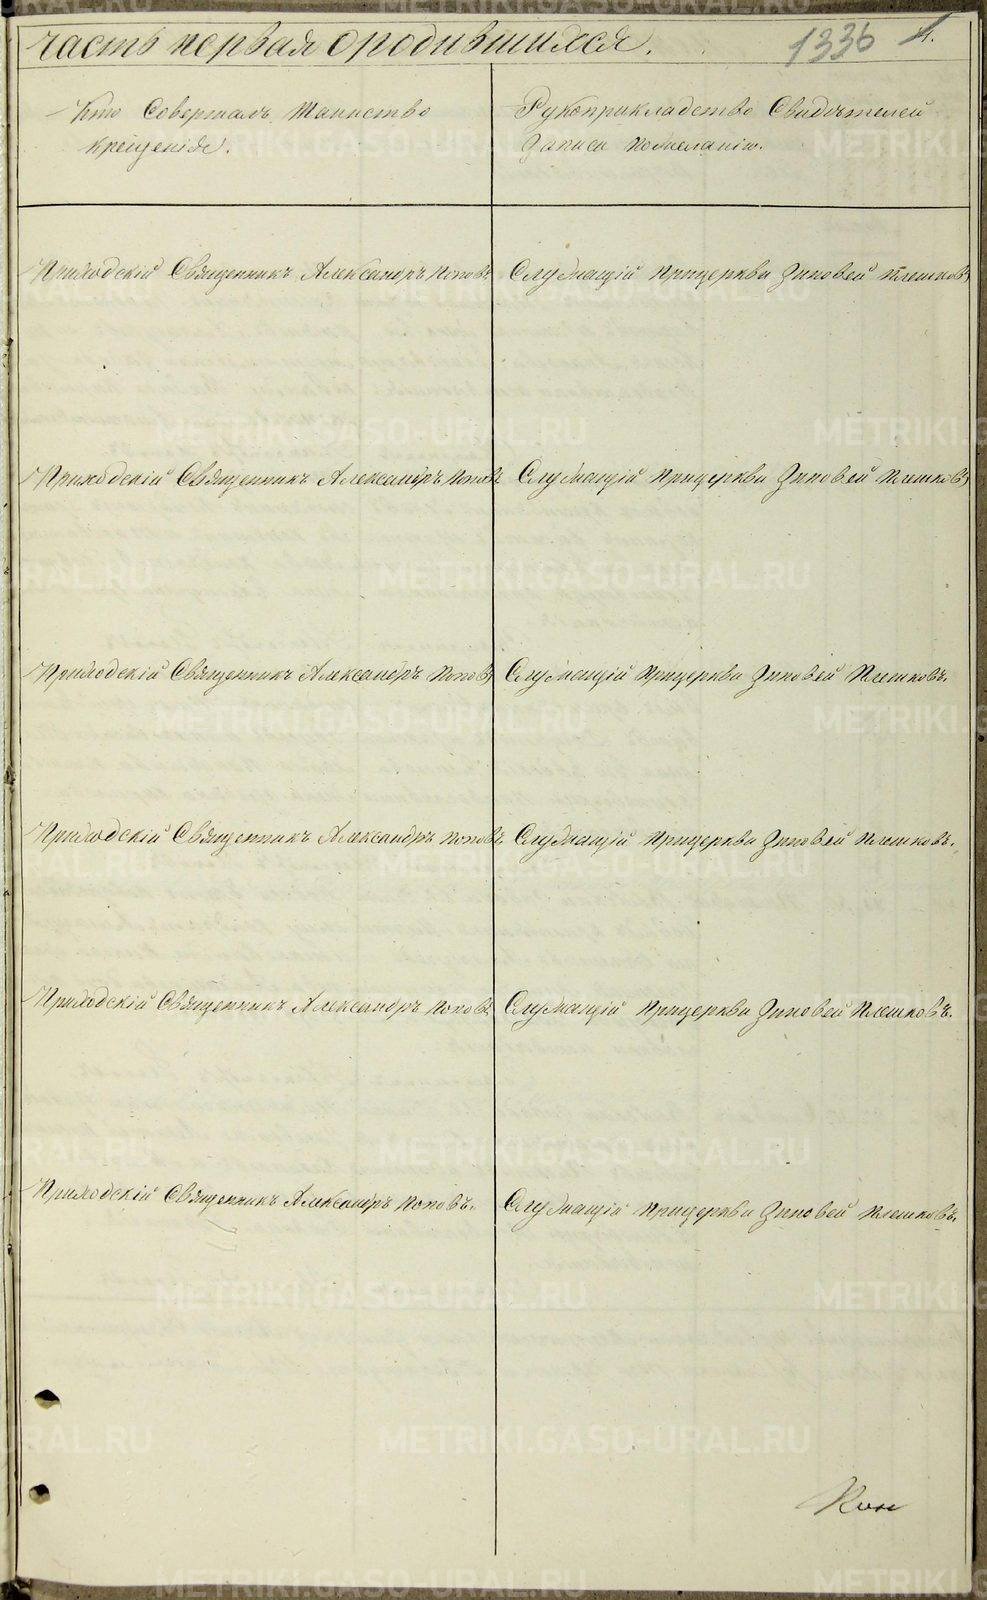 часть первая о родившихся.
1336 4.
Кто Совершалъ Таинство
крещенія.
Рукоприкладство Свидѣтелей
Записи по желанію.
Приходскій Священникъ Александръ Поповъ. Служащій при церкви Зиновей Плешковъ
Приходскій Священникъ Александръ Поповъ Служащій при церкви Зиновей Плешковъ
Приходскій Священникъ Александръ Поповъ Служащій при церкви Зиновей Плешковъ.
Приходскій Священникъ Александръ Поповъ Служащій при церкви Зиновей Плешковъ.
Приходскій Священникъ Александръ Поповъ. Служащій при церкви Зиновей Плешковъ.
Приходскій Священникъ Александръ Поповъ. Служащій при церкви Зиновей Плешковъ.
METRIKI.GASO-URAL.RU